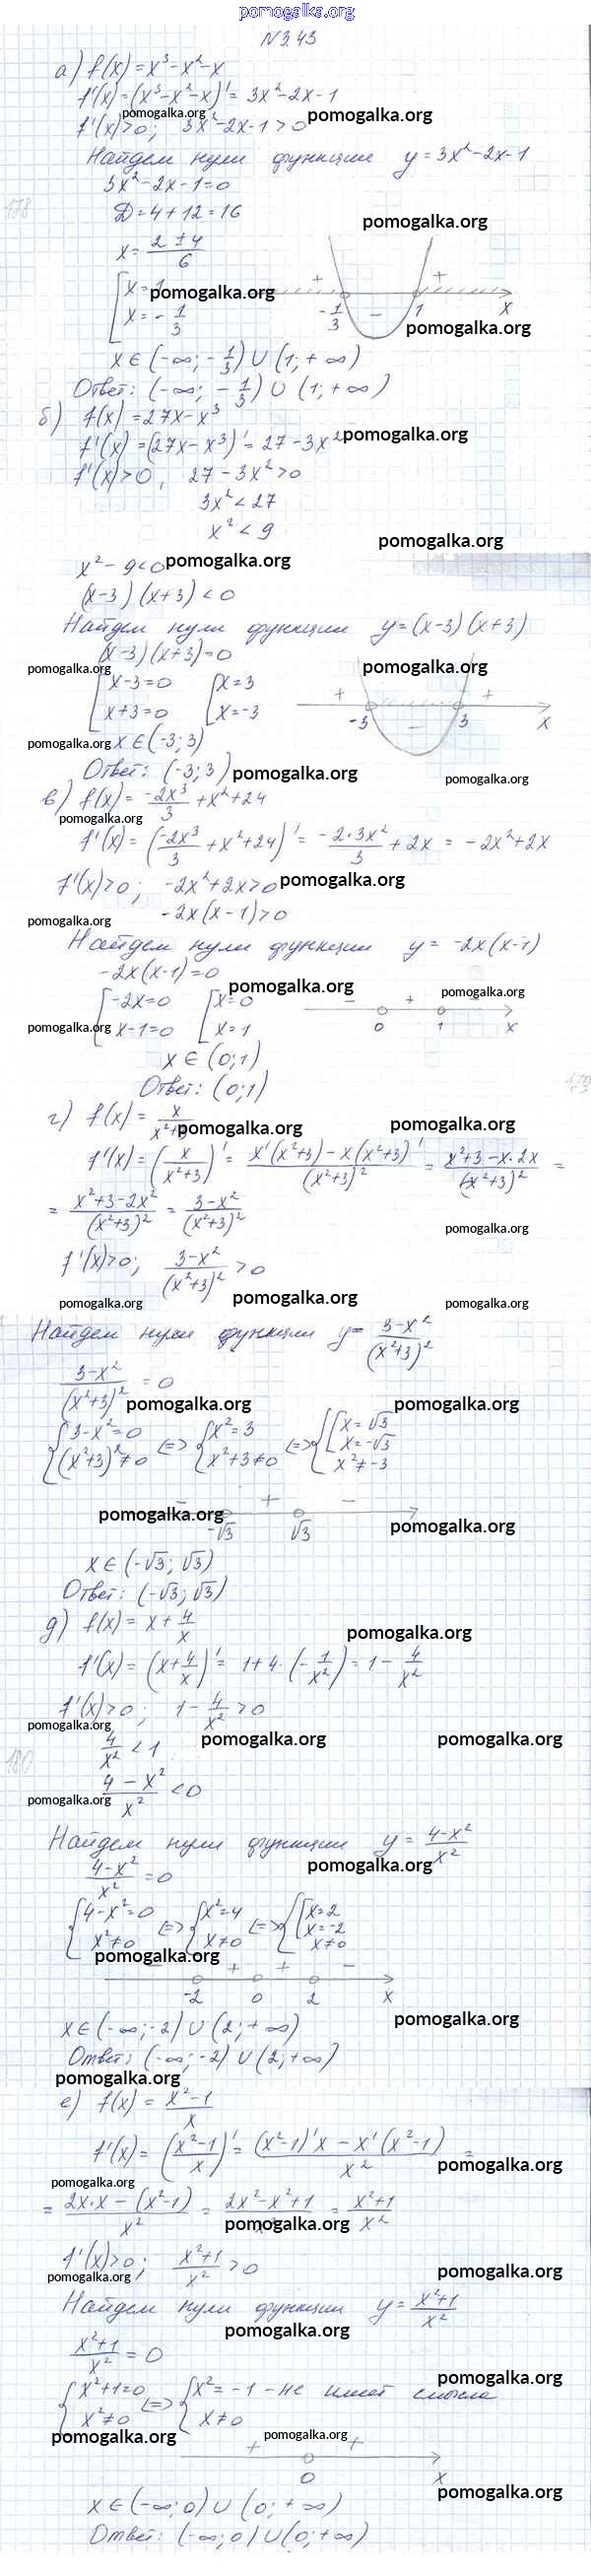 pomogalka.org
N 3.43
а) f(x) = x³-x²-x
f'(x) = (x³-x²-x)' = 3x²-2x-1
pomogalka.org pomogalka.org
f'(x)>0; 3x²-2x-1>0
Найдем нули функции y=3x²-2x-1
3x²-2x-1=0
178
D=4+12=16
pomogalka.org
x = (2±4)/6
[x=1
x=-1/3
pomogalka.org
+ - + -1/3 1 x
pomogalka.org
x∈(-∞; -1/3)∪(1; +∞)
Ответ: (-∞; -1/3)∪(1; +∞)
б) f(x)=27x-x³
f'(x)=(27x-x³)'=27-3x²
pomogalka.org
f'(x)>0, 27-3x²>0
3x²<27
x²<9
pomogalka.org
x²-9<0
pomogalka.org
(x-3)(x+3)<0
Найдем нули функции y=(x-3)(x+3)
(x-3)(x+3)=0
pomogalka.org pomogalka.org
[x-3=0 [x=3
x+3=0 x=-3
+ - + -3 3 x
pomogalka.org x∈(-3;3)
Ответ: (-3;3)
pomogalka.org pomogalka.org
в) f(x)= -2x³/3 +x²+24
pomogalka.org
f'(x)=(-2x³/3 +x²+24)' = -2·3x²/3 +2x = -2x²+2x
f'(x)>0; -2x²+2x>0
pomogalka.org
-2x(x-1)>0
pomogalka.org
Найдем нули функции y= -2x(x-1)
-2x(x-1)=0
pomogalka.org pomogalka.org
[-2x=0 [x=0
x-1=0 x=1
pomogalka.org
- + 0 1 x
x∈(0;1)
Ответ: (0;1)
179
г) f(x)= x/(x²+3)
pomogalka.org pomogalka.org
f'(x)=(x/(x²+3))' = (x'(x²+3)-x(x²+3)')/(x²+3)² = (x²+3-x·2x)/(x²+3)² =
= (x²+3-2x²)/(x²+3)² = (3-x²)/(x²+3)²
pomogalka.org
f'(x)>0; (3-x²)/(x²+3)² >0
pomogalka.org pomogalka.org pomogalka.org
Найдем нули функции y= (3-x²)/(x²+3)²
(3-x²)/(x²+3)² =0
pomogalka.org pomogalka.org
{3-x²=0 <=> {x²=3 <=> {[x=√3
(x²+3)²≠0 x²+3≠0 x=-√3
x²≠-3
- + - -√3 √3
pomogalka.org pomogalka.org
x∈(-√3; √3)
Ответ: (-√3; √3)
д) f(x)= x+4/x
pomogalka.org
f'(x)=(x+4/x)' = 1+4·(-1/x²)=1-4/x²
f'(x)>0; 1-4/x²>0
pomogalka.org pomogalka.org pomogalka.org
180
4/x² <1
(4-x²)/x² <0
pomogalka.org
Найдем нули функции y= (4-x²)/x²
pomogalka.org
(4-x²)/x² =0
{4-x²=0 <=> {x²=4 <=> {[x=2
x²≠0 x≠0 x=-2
x≠0
pomogalka.org
+ + - -2 0 2 x
pomogalka.org
x∈(-∞;-2)∪(2;+∞)
Ответ: (-∞;-2)∪(2;+∞)
pomogalka.org
е) f(x) = (x²-1)/x
f'(x)=((x²-1)/x)' = ((x²-1)'x - x'(x²-1))/x² =
pomogalka.org
pomogalka.org
= (2x·x-(x²-1))/x² = (2x²-x²+1)/x² = (x²+1)/x²
pomogalka.org
f'(x)>0; (x²+1)/x² >0
pomogalka.org pomogalka.org
Найдем нули функции y= (x²+1)/x²
pomogalka.org
(x²+1)/x² =0
pomogalka.org
{x²+1=0 <=> {x²=-1 - не имеет смысла
x²≠0 x≠0
pomogalka.org pomogalka.org
+ + 0 x
pomogalka.org
x∈(-∞;0)∪(0;+∞)
Ответ: (-∞;0)∪(0;+∞)